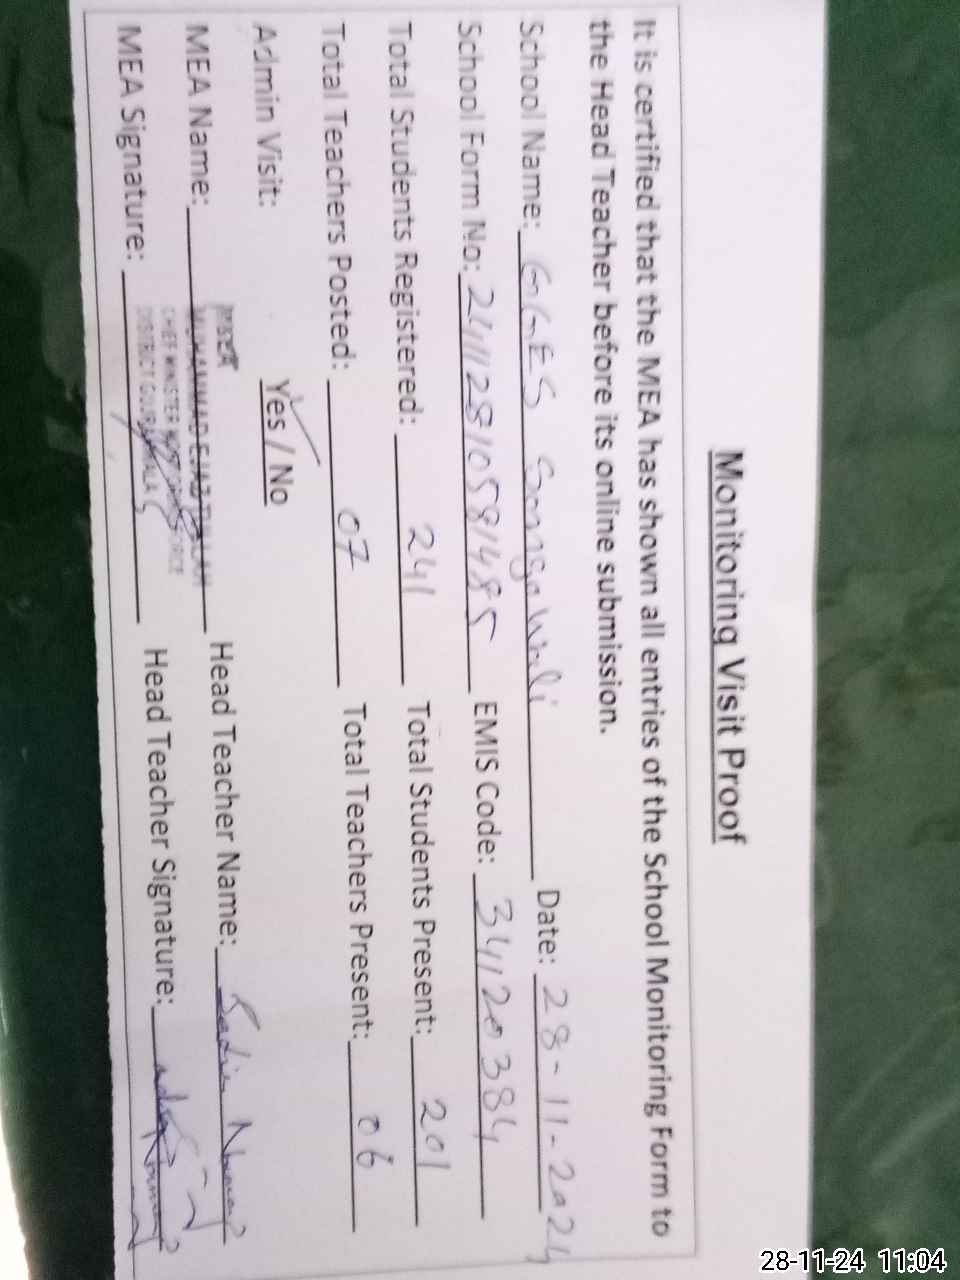 Monitoring Visit Proof
It is certified that the MEA has shown all entries of the School Monitoring Form to
the Head Teacher before its online submission.
School Name: GGES Sansgo Wali Date: 28-11-2024
School Form No: 24112810581485 EMIS Code: 34120384
Total Students Registered: 241 Total Students Present: 201
Total Teachers Posted: 07 Total Teachers Present: 06
Admin Visit: Yes / No
MEA Name: MUHAMMAD EJAZ Head Teacher Name: Sadia
CHIEF MINISTER MONITORING FORCE
MEA Signature: DISTRICT GUJRANWALA Head Teacher Signature:
28-11-24 11:04